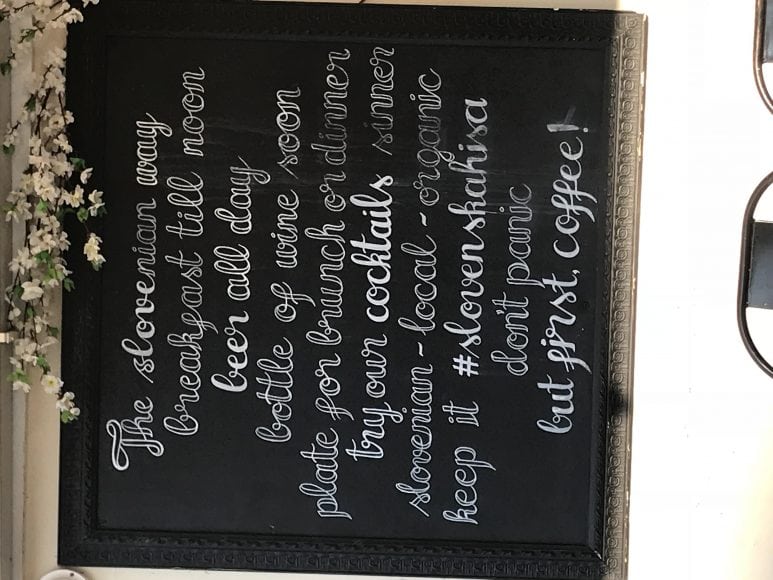 The slovenian way
breakfast till noon
beer all day
bottle of wine soon
plate for brunch or dinner
try our cocktails sinner
slovenian ~ local ~ organic
keep it #slovenskahisa
don't panic
but first, coffee!